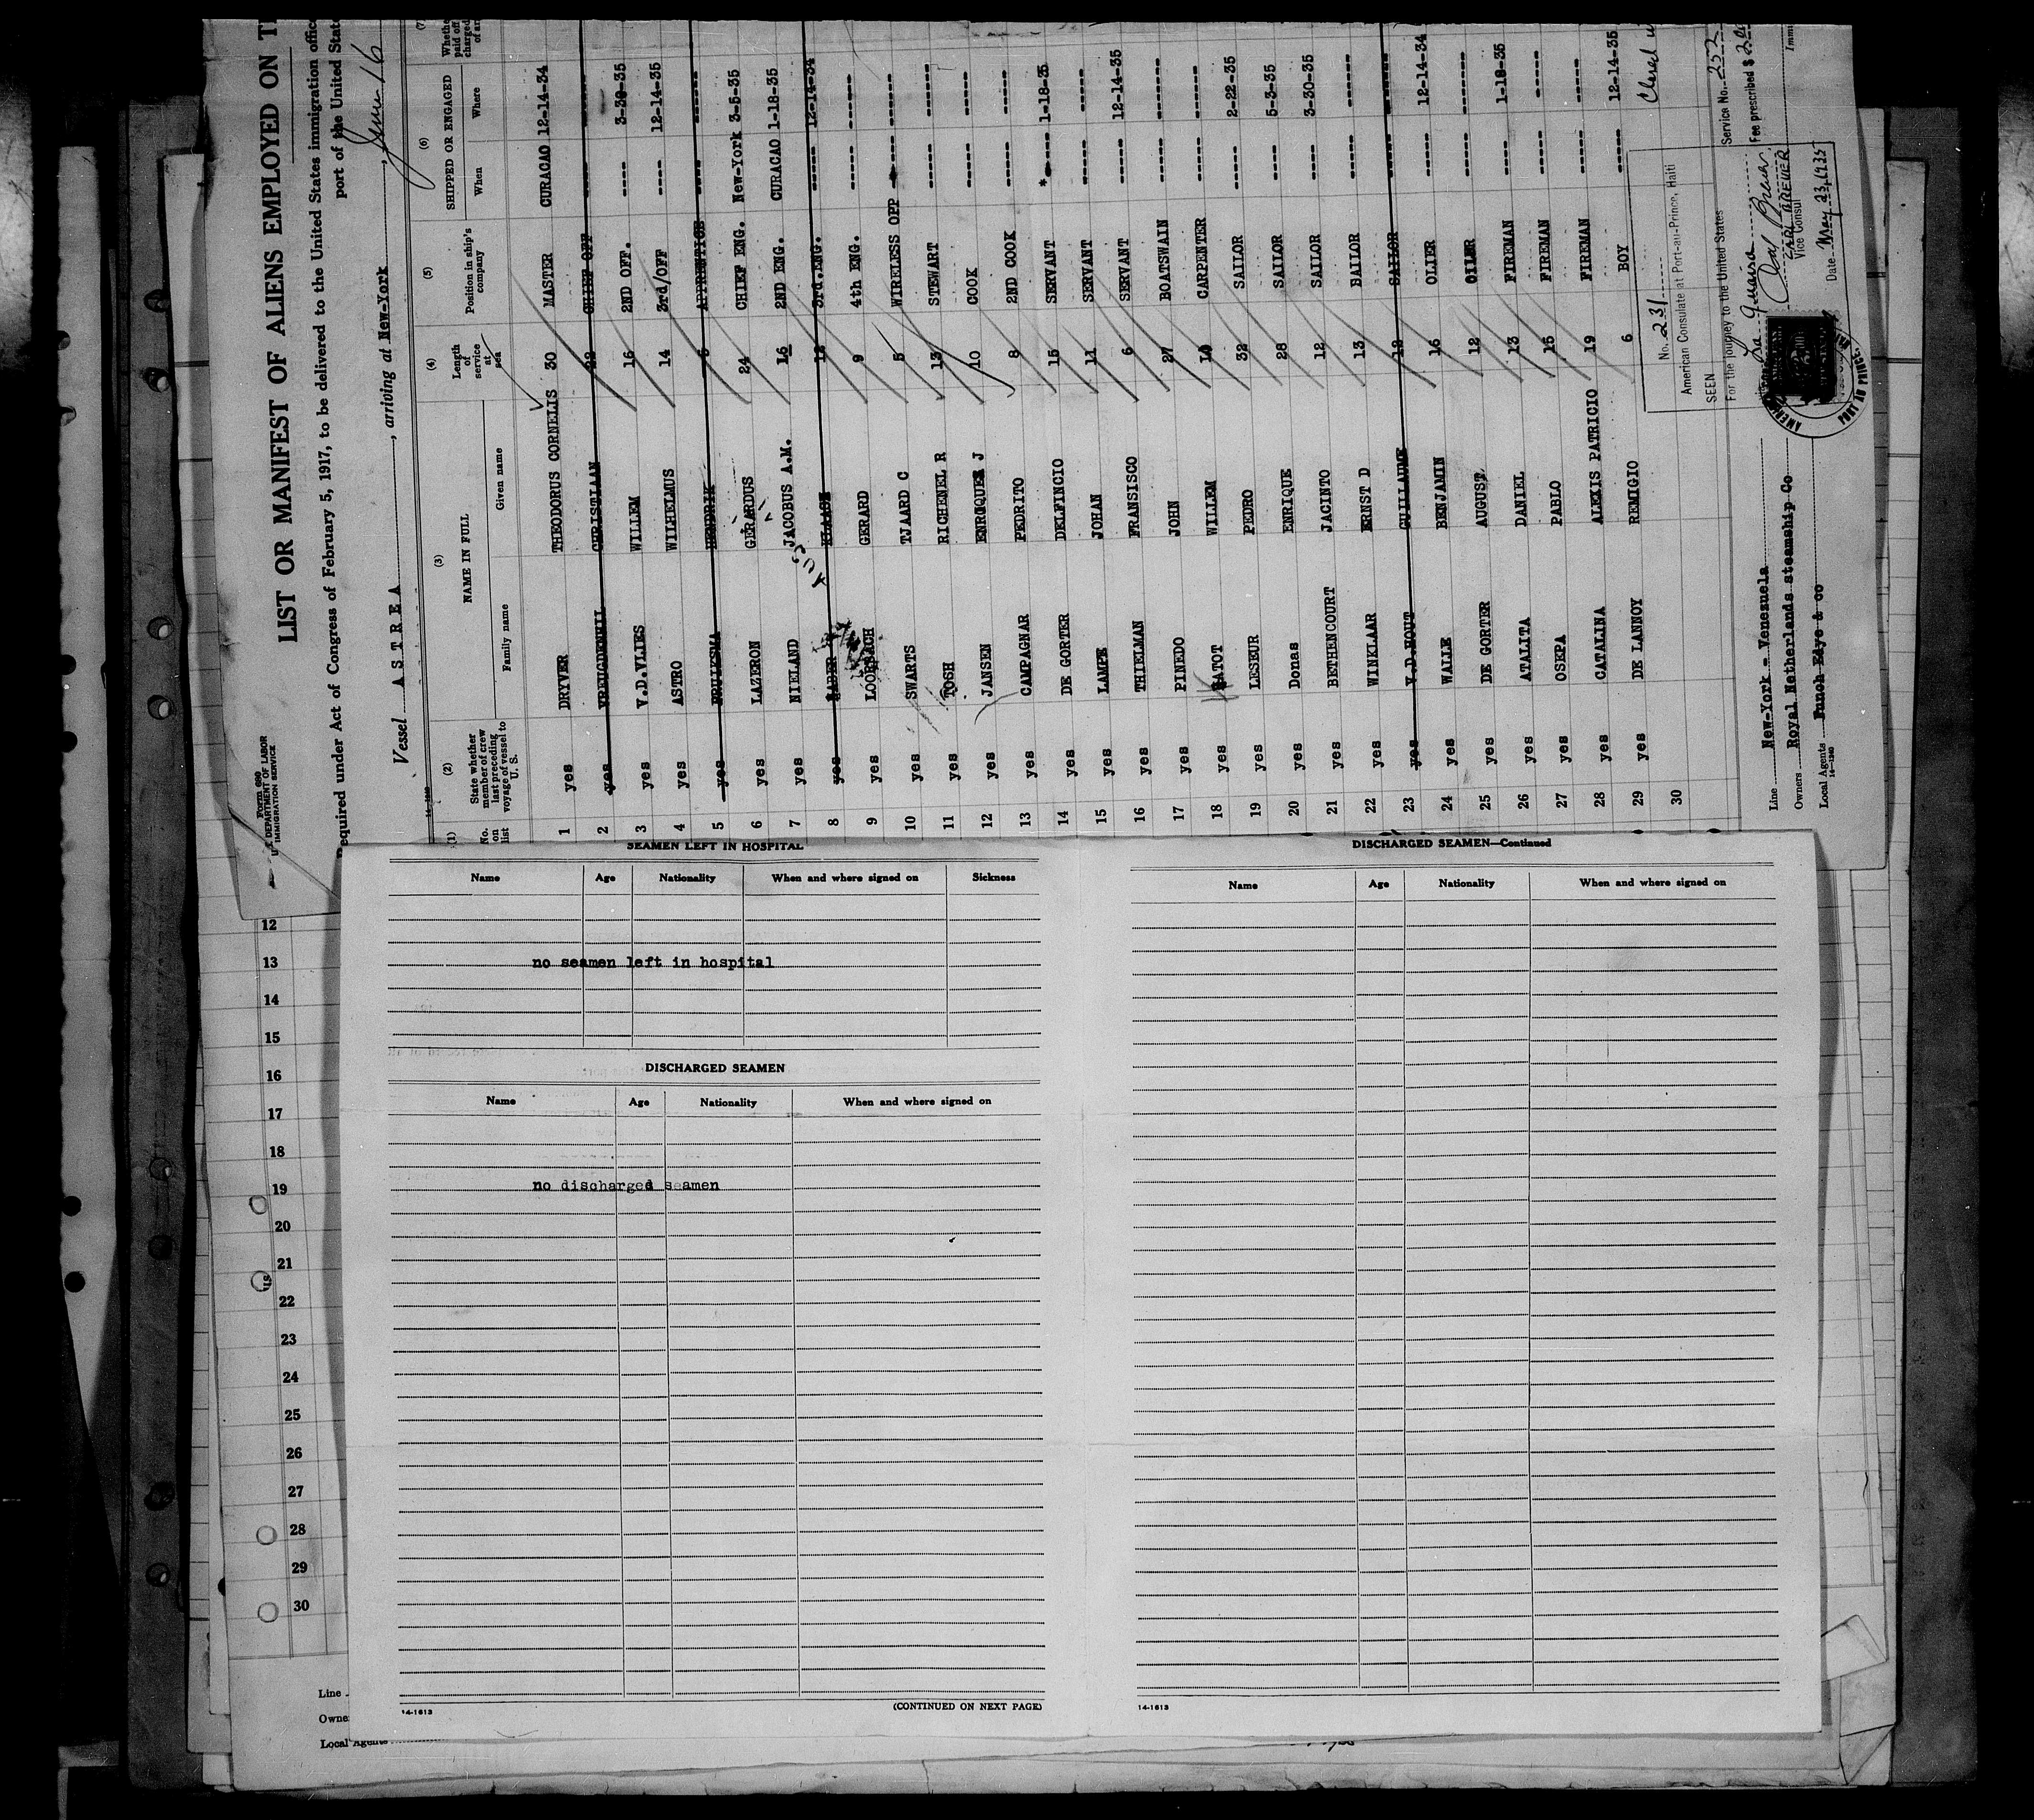 Form 680
U. S. DEPARTMENT OF LABOR
IMMIGRATION SERVICE
LIST OR MANIFEST OF ALIENS EMPLOYED ON T
Required under Act of Congress of February 5, 1917, to be delivered to the United States immigration offic
port of the United Stat
Vessel A S T R E A, arriving at New-York, June 16
(1) (2) (3) (4) (5) (6) (7)
No. on list State whether member of crew last preceding voyage of vessel to U. S. NAME IN FULL Length of service at sea Position in ship's company SHIPPED OR ENGAGED Whethe paid off charged of ar
Family name Given name When Where
1 yes DRYVER THEODORUS CORNELIS 30 MASTER CURACAO 12-14-34
2 yes VREUGDENHIL CHRISTIAAN 22 CHIEF OFF ---- ------
3 yes V.D.VLIES WILLEM 16 2ND OFF. ---- 3-30-35
4 yes ASTRO WILHELMUS 14 3rd/OFF ---- 12-14-35
5 yes KRUIKSMA HENDRIK 5 APPRENTICE ---- ------
6 yes LAZERON GERARDUS 24 CHIEF ENG. New-York 3-5-35
7 yes NIELAND JACOBUS A.M. 16 2ND ENG. CURACAO 1-18-35
8 yes KLAASE 12 3rd.ENG. ----- 12-14-34
9 yes LOORBACH GERARD 9 4th ENG. ----- ------
10 yes SWARTS TJAARD C 5 WIRELESS OPP ----- ------
11 yes TOSH RICHENEL R 13 STEWART ----- ------
12 yes JANSEN ENRQQUEZ J 10 COOK ---- -----
13 yes CAMPAGNAR PEDRITO 8 2ND COOK ---- -----
14 yes DE GORTER DELFINCIO 15 SERVANT *----- 1-18-35
15 yes LAMPE JOHAN 11 SERVANT ----- -----
16 yes THIELMAN FRANSISCO 6 SERVANT ----- 12-14-35
17 yes PINEDO JOHN 27 BOATSWAIN ----- -------
18 yes WILLEM 10 CARPENTER ----- ------
19 yes LESEUR PEDRO 32 SAILOR ---- 2-22-35
20 yes Donas ENRIQUE 28 SAILOR ---- 5-3-35
21 yes BETHENCOURT JACINTO 12 SAILOR ---- 3-30-35
22 yes WINKLAAR ERNST D 13 SAILOR ----- ------
23 yes V.D.HOUT GUILLAUME 12 SAILOR ----- ------
24 yes WALLE BENJAMIN 16 OLIER ----- 12-14-34
25 yes DE GORTER AUGUST 12 OILER ----- ------
26 yes ATALITA DANIEL 13 FIREMAN ----- 1-18-35
27 yes OSEPA PABLO 15 FIREMAN ----- -----
28 yes CATALINA ALEXIS PATRICIO 19 FIREMAN ----- -----
29 yes DE LANNOY REMIGIO 6 BOY ----- 12-14-35
30
No. 231
American Consulate at Port-au-Prince, Haiti
SEEN
For the journey to the United States
La Guaira
EARL BREWER
Vice Consul
Date May 23, 1935
Service No. 252
Fee prescribed $
Line New-York - Venezuela
Owners Royal Netherlands steamship Co
Local Agents Funch Edye & co
14-1240
SEAMEN LEFT IN HOSPITAL
Name Age Nationality When and where signed on Sickness
no seamen left in hospital
DISCHARGED SEAMEN
Name Age Nationality When and where signed on
no discharged seamen
(CONTINUED ON NEXT PAGE)
14-1613
DISCHARGED SEAMEN—Continued
Name Age Nationality When and where signed on
14-1613
12
13
14
15
16
17
18
19
20
21
22
23
24
25
26
27
28
29
30
Line
Owne
Local Agents